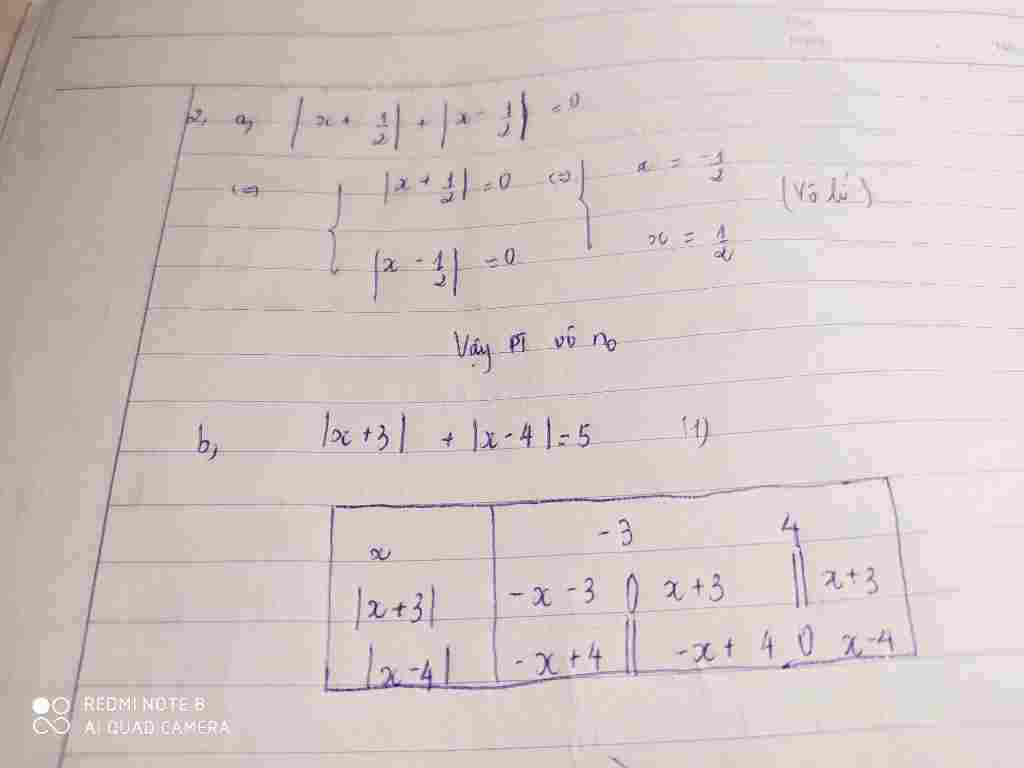 2, a, |x + 1/2| + |x - 1/2| = 0
<=> { |x + 1/2| = 0 <=> { x = -1/2 (Vô lí)
|x - 1/2| = 0 x = 1/2
Vậy PT vô n₀
b, |x+3| + |x-4| = 5 (1)
x -3 4
|x+3| -x-3 0 x+3 || x+3
|x-4| -x+4 || -x+4 0 x-4
REDMI NOTE 8
AI QUAD CAMERA